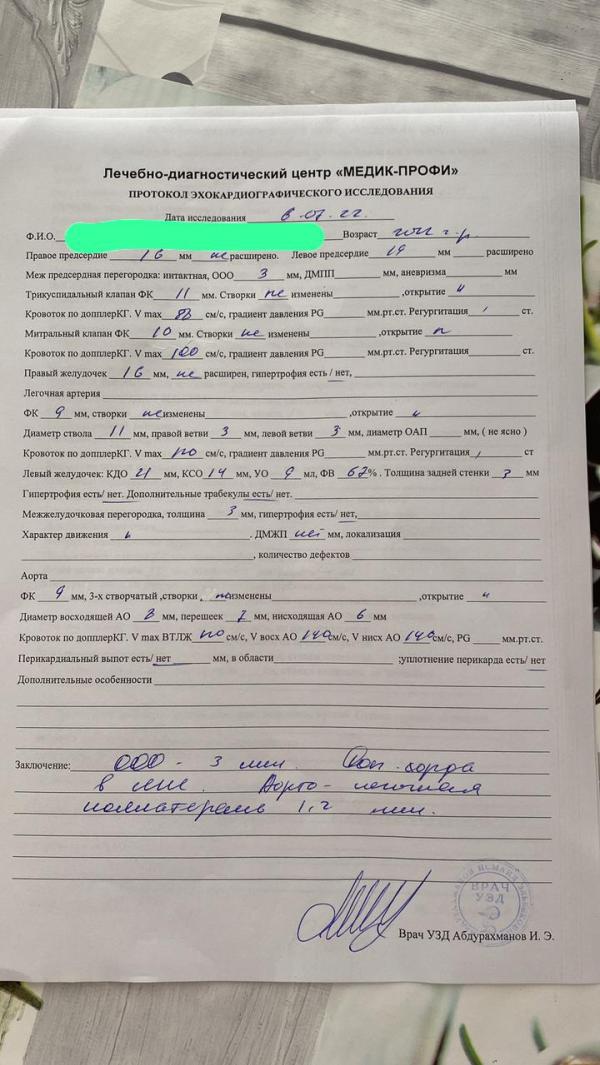 Лечебно-диагностический центр «МЕДИК-ПРОФИ»
ПРОТОКОЛ ЭХОКАРДИОГРАФИЧЕСКОГО ИССЛЕДОВАНИЯ
Дата исследования 6.07.22.
Ф.И.О. Возраст 2022 г.р.
Правое предсердие 16 мм не расширено. Левое предсердие 19 мм расширено
Меж предсердная перегородка: интактная, ООО 3 мм, ДМПП мм, аневризма мм
Трикуспидальный клапан ФК 11 мм. Створки не изменены ,открытие
Кровоток по допплерКГ. V max 83 см/с, градиент давления PG мм.рт.ст. Регургитация ст.
Митральный клапан ФК 10 мм. Створки не изменены ,открытие
Кровоток по допплерКГ. V max 100 см/с, градиент давления PG мм.рт.ст. Регургитация ст.
Правый желудочек 16 мм, не расширен, гипертрофия есть / нет,
Легочная артерия
ФК 9 мм, створки не изменены ,открытие
Диаметр ствола 11 мм, правой ветви 3 мм, левой ветви 3 мм, диаметр ОАП мм, ( не ясно )
Кровоток по допплерКГ. V max см/с, градиент давления PG мм.рт.ст. Регургитация ст
Левый желудочек: КДО 21 мм, КСО 14 мм, УО 9 мл, ФВ % . Толщина задней стенки 3 мм
Гипертрофия есть/ нет. Дополнительные трабекулы есть/ нет.
Межжелудочковая перегородка, толщина 3 мм, гипертрофия есть/ нет,
Характер движения . ДМЖП нет мм, локализация
, количество дефектов
Аорта
ФК 9 мм, 3-х створчатый ,створки не изменены ,открытие
Диаметр восходяшей АО 8 мм, перешеек 7 мм, нисходящая АО 6 мм
Кровоток по допплерКГ. V max ВТЛЖ см/с, V восх АО 140 см/с, V нисх АО 140 см/с, PG мм.рт.ст.
Перикардиальный выпот есть/ нет мм, в области ;уплотнение перикарда есть/ нет
Дополнительные особенности
Заключение: ООО - 3 мм. Доп. хорда
в лж. Аорто-легочная
коллатераль 1,2 мм.
ВРАЧ
УЗД
Врач УЗД Абдурахманов И. Э.